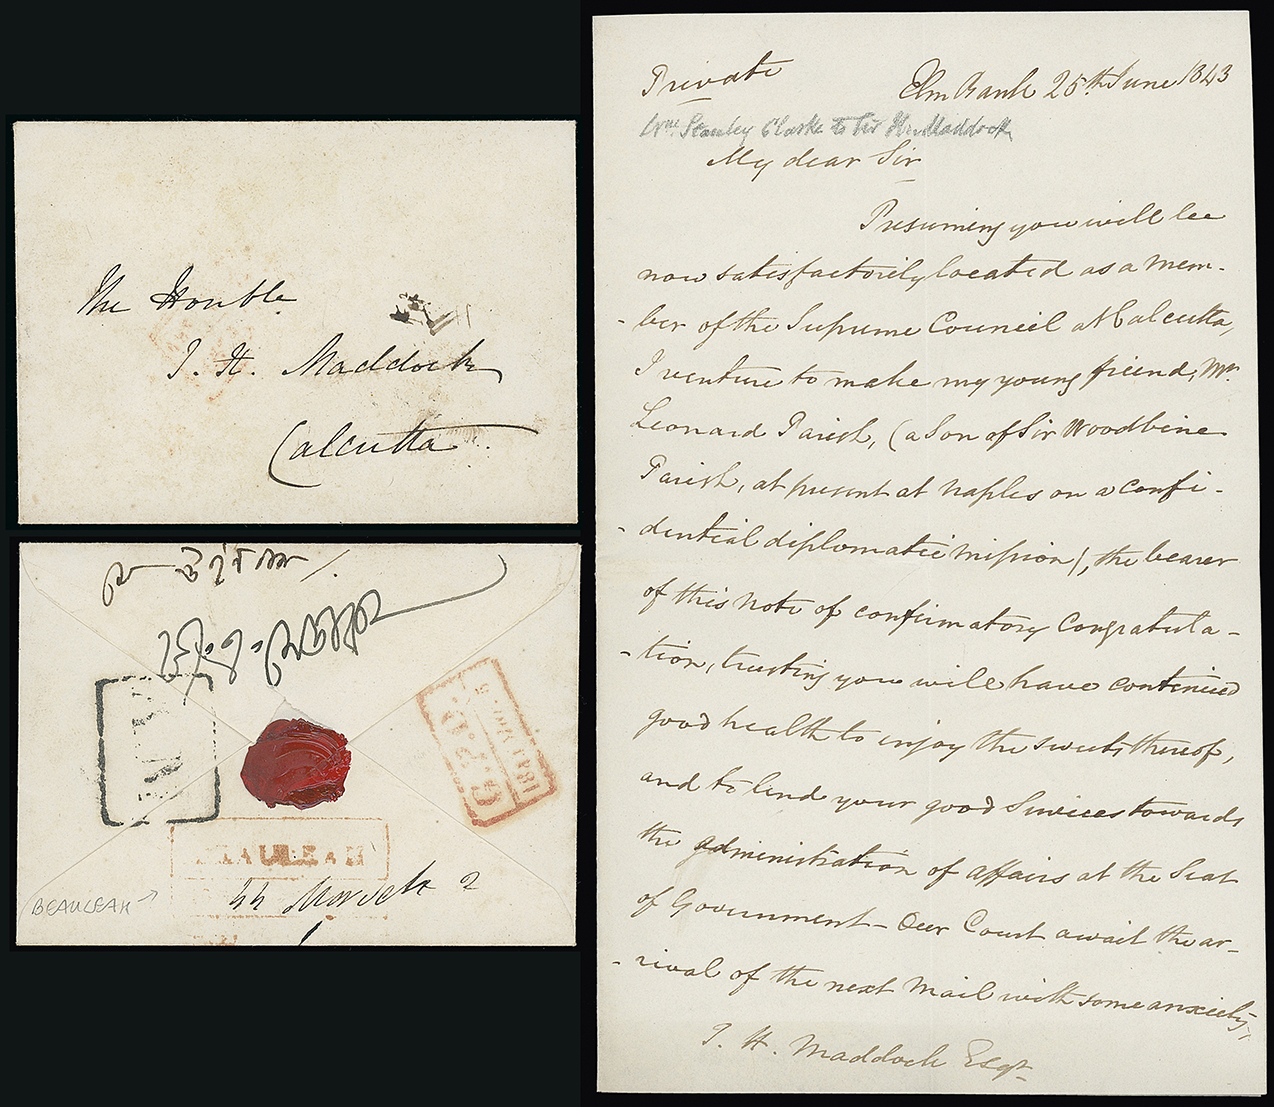 The Honble
T. H. Maddock
Calcutta
G.P.O.
BAULEAH
44 March 2
BEAULEAH
Private
Elm Bank 25th June 1843
Wm. Stanley Clarke to Sir H. Maddock
My dear Sir
Presuming you will be
now satisfactorily located as a mem-
-ber of the Supreme Council at Calcutta,
I venture to make my young friend, Mr.
Leonard Parish, (a Son of Sir Woodbine
Parish, at present at Naples on a confi-
-dential diplomatic mission), the bearer
of this note of confirmatory Congratula-
-tion, trusting you will have continued
good health to enjoy the sweets thereof,
and to lend your good Services towards
the administration of affairs at the Seat
of Government - Our Court await the ar-
-rival of the next Mail with some anxiety,
T. H. Maddock Esqr.